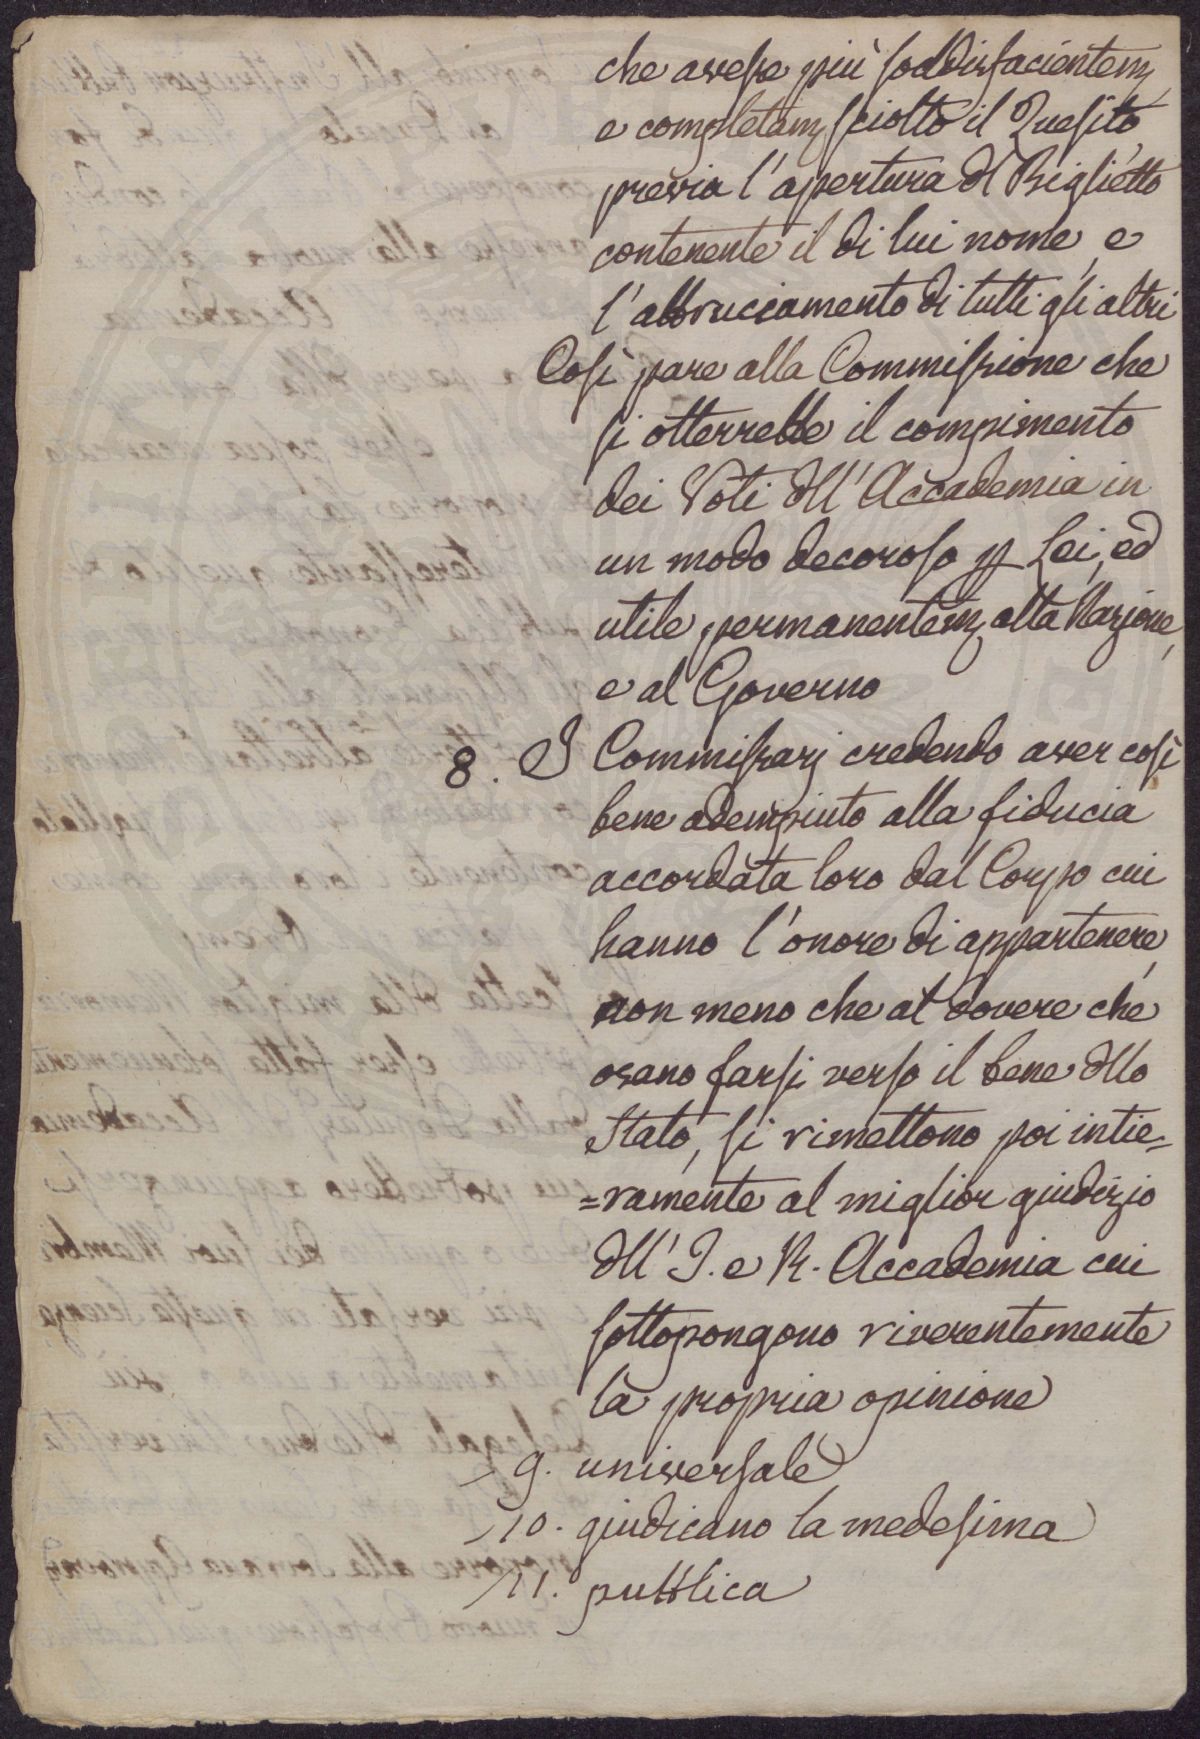 che avesse più soddisfacientem̃
e completam̃ sciolto il Quesito
previa l'apertura dl Biglietto
contenente il di lui nome, e
l'abbruciamento di tutti gli altri
Così pare alla Commissione che
si otterrebbe il compimento
dei Voti dll' Accademia in
un modo decoroso p Lei, ed
utile permanentem̃ alla Nazione,
e al Governo
8. I Commissarj credendo aver così
bene adempiuto alla fiducia
accordata loro dal Corpo cui
hanno l'onore di appartenere,
non meno che al dovere che
osano farsi verso il bene dllo
Stato, si rimettono poi intie=
=ramente al miglior giudizio
dll' I. e R. Accademia cui
sottopongono riverentemente
la propria opinione
9. universale
10. giudicano la medesima
11. pubblica